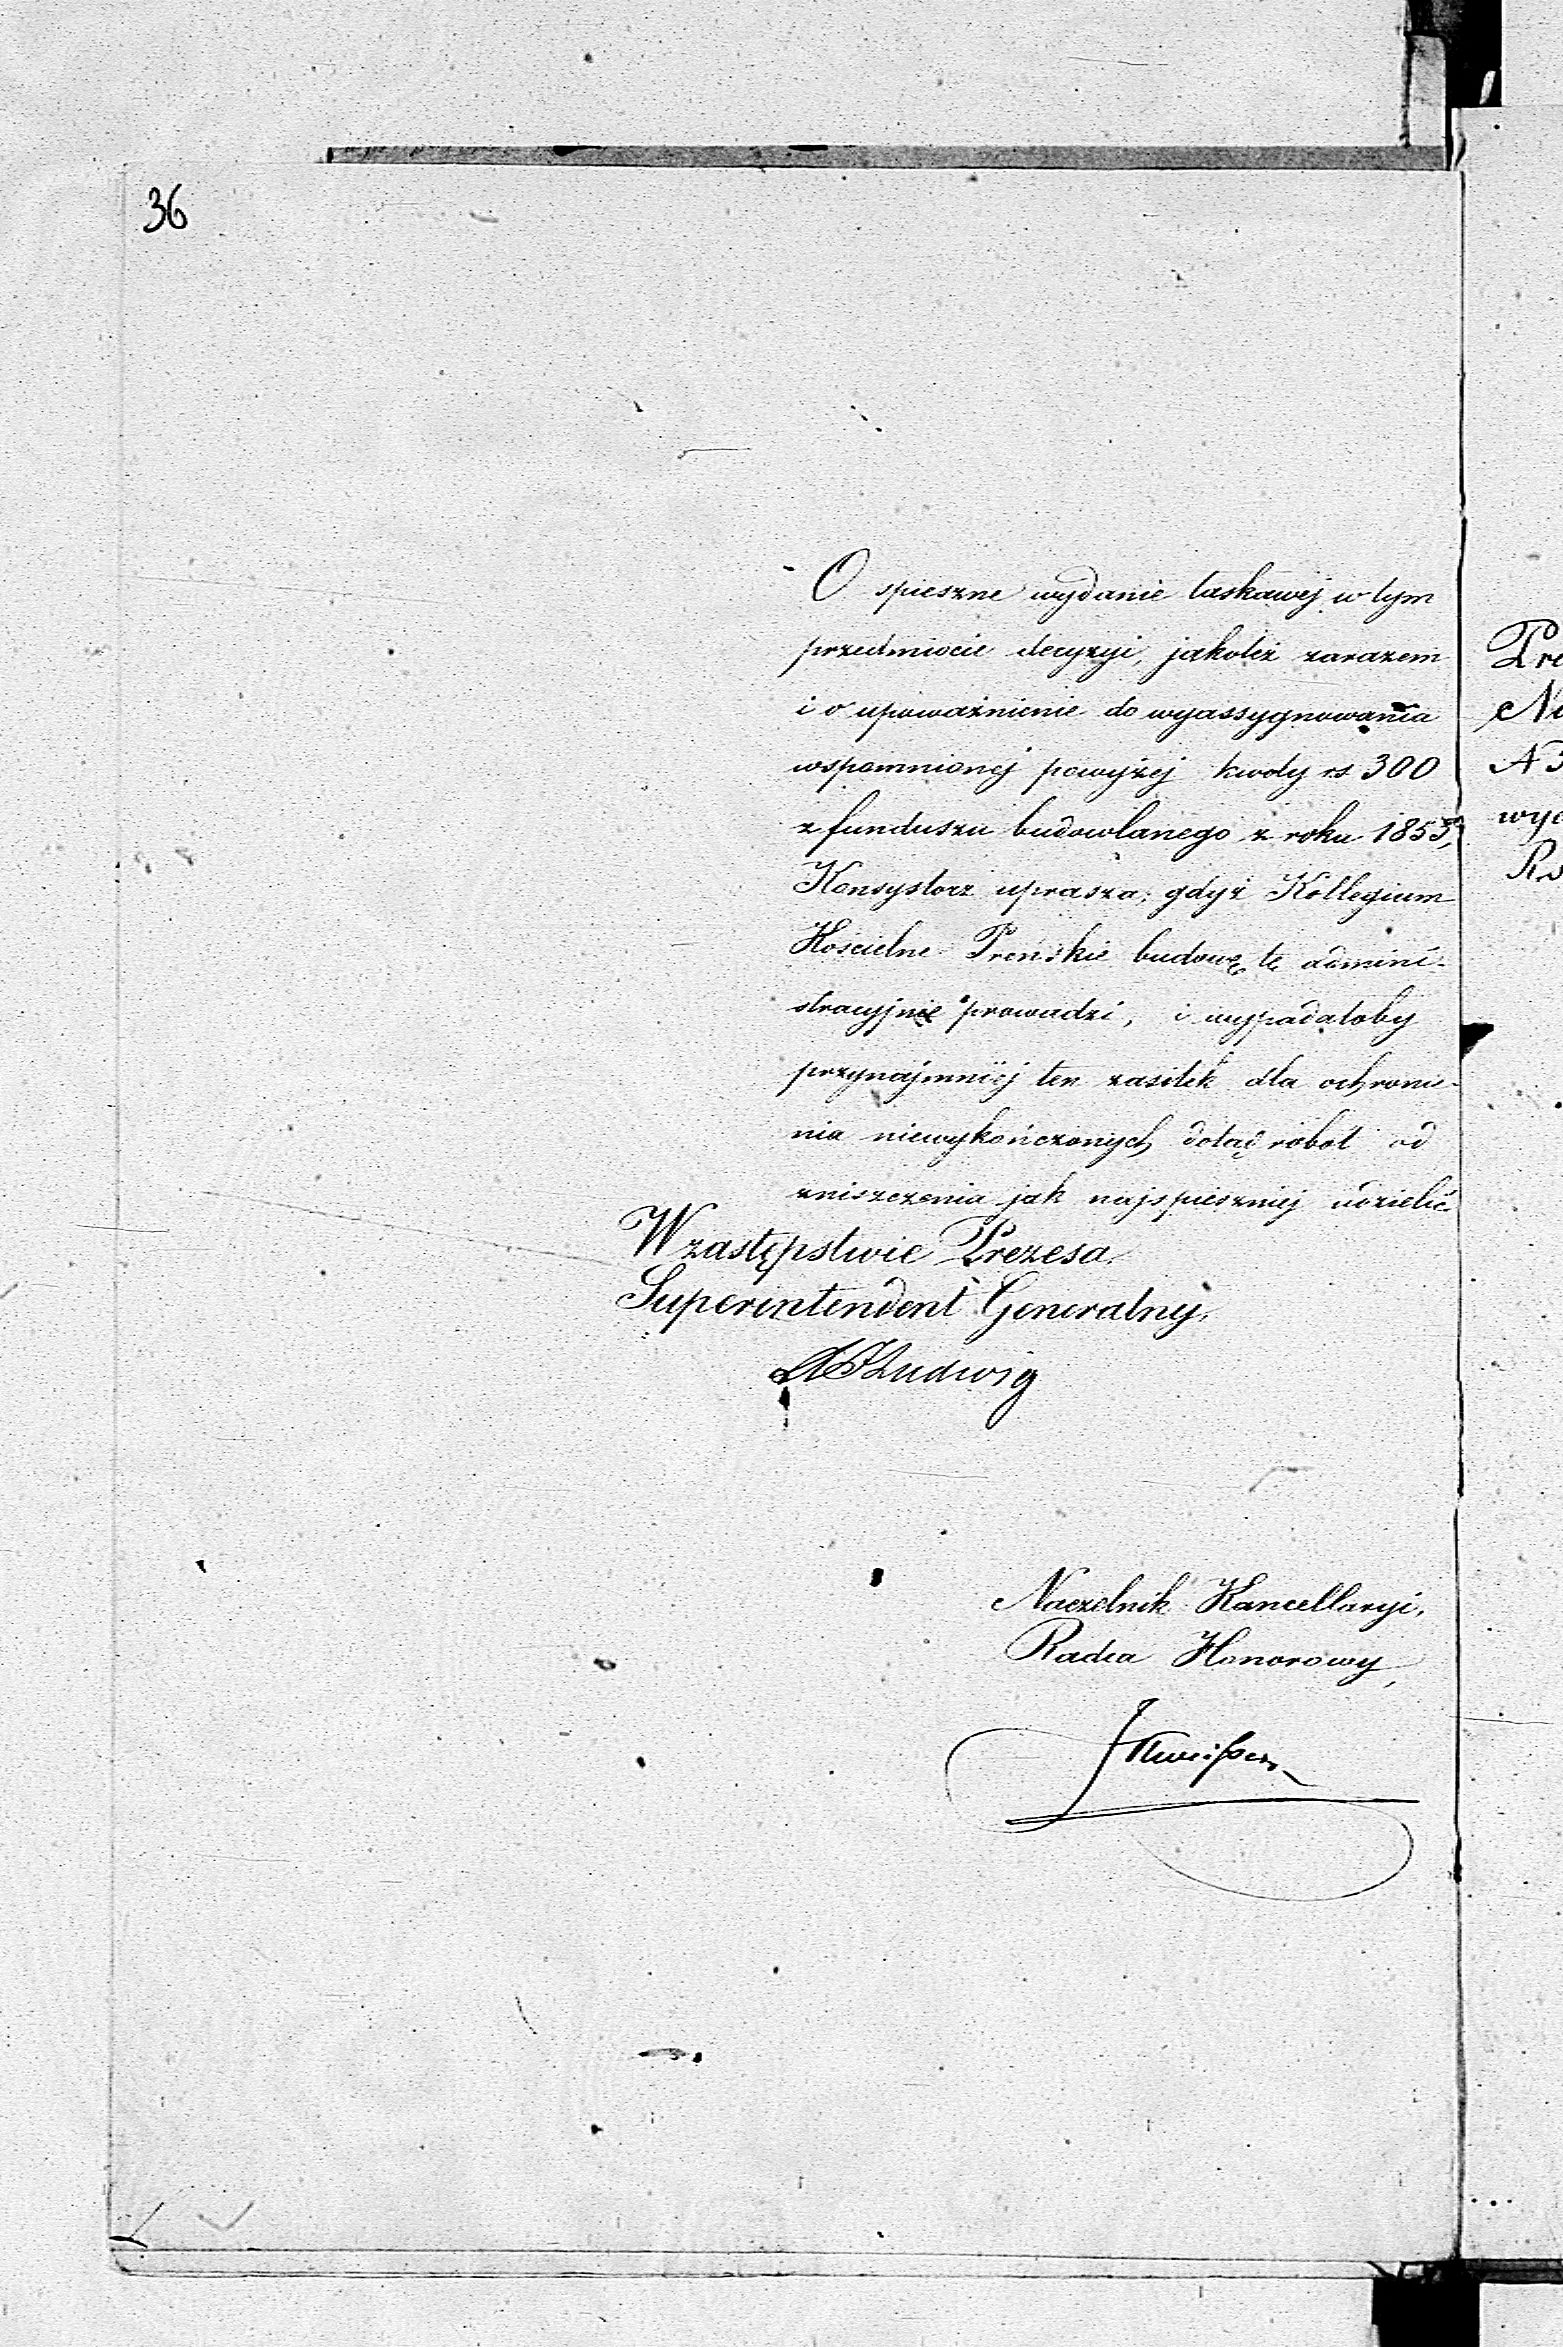 36
O spieszne wydanie łaskawej w tym
przedmiocie decyzyi, jakoteż zarazem
i o upoważnienie do wyassygnowania
wspomnionej powyżej kwoty rs 300
z funduszu budowlanego z roku 1855,
Konsystorz uprasza, gdyż Kollegium
Kościelne Preńskie budowę tę admini-
stracyjnie prowadzi, i wypadałoby
przynajmniej ten zasiłek dla ochronie-
nia niewykończonych dotąd robót od
zniszczenia jak najspieszniej udzielić.
W zastępstwie Prezesa
Superintendent Generalny,
Ludwig
Naczelnik Kancellaryi,
Radca Honorowy,
Pre
No
N 3
wyd
Rs